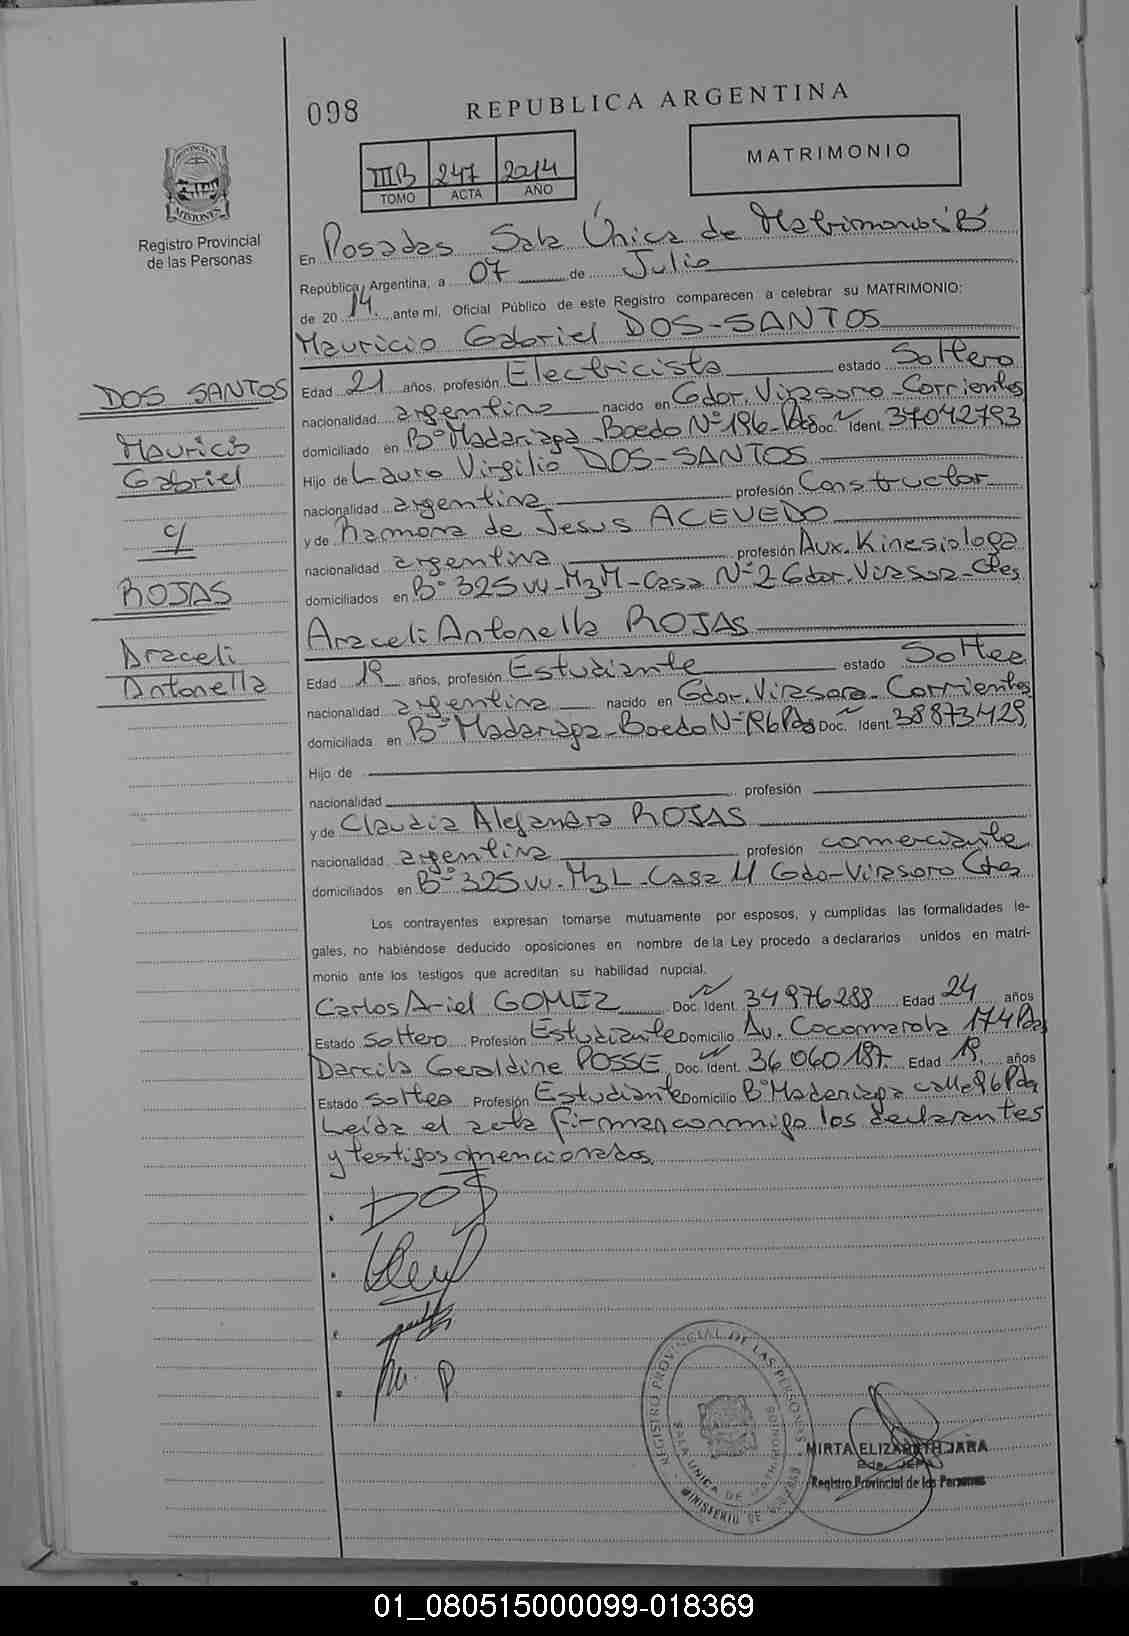 098
REPUBLICA ARGENTINA
IIIB 247 2014
TOMO ACTA AÑO
MATRIMONIO
PROVINCIA DE MISIONES
Registro Provincial
de las Personas
En Posadas Sala Única de Matrimonios "B"
República Argentina, a 07 de Julio
de 2014 ante mí, Oficial Público de este Registro comparecen a celebrar su MATRIMONIO:
Mauricio Gabriel DOS-SANTOS
Edad 21 años, profesión Electricista estado Soltero
nacionalidad argentina nacido en Gdor. Virasoro - Corrientes
domiciliado en B° Madariaga - Boedo N° 196 - Pdas Doc. Ident. 37042793
Hijo de Lauro Virgilio DOS-SANTOS
nacionalidad argentina profesión Constructor
y de Ramona de Jesus ACEVEDO
nacionalidad argentina profesión Aux. Kinesiologa
domiciliados en B° 325 vv - Mz M - Casa N° 2 Gdor. Virasoro - Ctes
Araceli Antonella ROJAS
Edad 19 años, profesión Estudiante estado Soltera
nacionalidad argentina nacido en Gdor. Virasoro - Corrientes
domiciliada en B° Madariaga - Boedo N° 196 Pdas Doc. Ident. 38873429
Hijo de
nacionalidad profesión
y de Claudia Alejandra ROJAS
nacionalidad argentina profesión comerciante
domiciliados en B° 325 vv - Mz L - Casa 11 Gdo-Virasoro Ctes
Los contrayentes expresan tomarse mutuamente por esposos, y cumplidas las formalidades le-
gales, no habiéndose deducido oposiciones en nombre de la Ley procedo a declararlos unidos en matri-
monio ante los testigos que acreditan su habilidad nupcial.
Carlos Ariel GOMEZ Doc. Ident. 34976288 Edad 24 años
Estado Soltero Profesión Estudiante Domicilio Av. Cocomarola 174 Pdas
Darcila Geraldine POSSE Doc. Ident. 36060187 Edad 19 años
Estado Soltera Profesión Estudiante Domicilio B° Madariaga calle 96 Pdas
Leída el acta firman conmigo los declarantes
y testigos mencionados
DOS SANTOS
Mauricio
Gabriel
c/
ROJAS
Araceli
Antonella
DOS
REGISTRO PROVINCIAL DE LAS PERSONAS
SALA UNICA DE MATRIMONIOS
MINISTERIO DE
MIRTA ELIZABETH JARA
Registro Provincial de las Personas
01_080515000099-018369